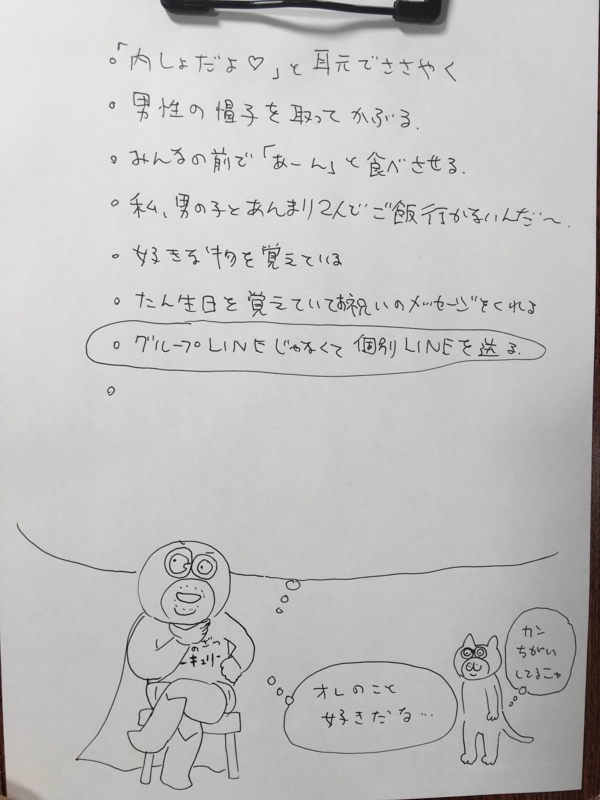 。「内しょだよ♡」と耳元でささやく
。男性の帽子を取ってかぶる.
。みんなの前で「あーん」と食べさせる.
。私、男の子とあんまり2人でご飯行かないんだ〜.
。好きな物を覚えている
。たん生日を覚えていてお祝いのメッセージをくれる
。グループLINEじゃなくて個別LINEを送る.
。
のざつ
ーキュリー
オレのこと
好きだな…
カン
ちがい
してるニャ